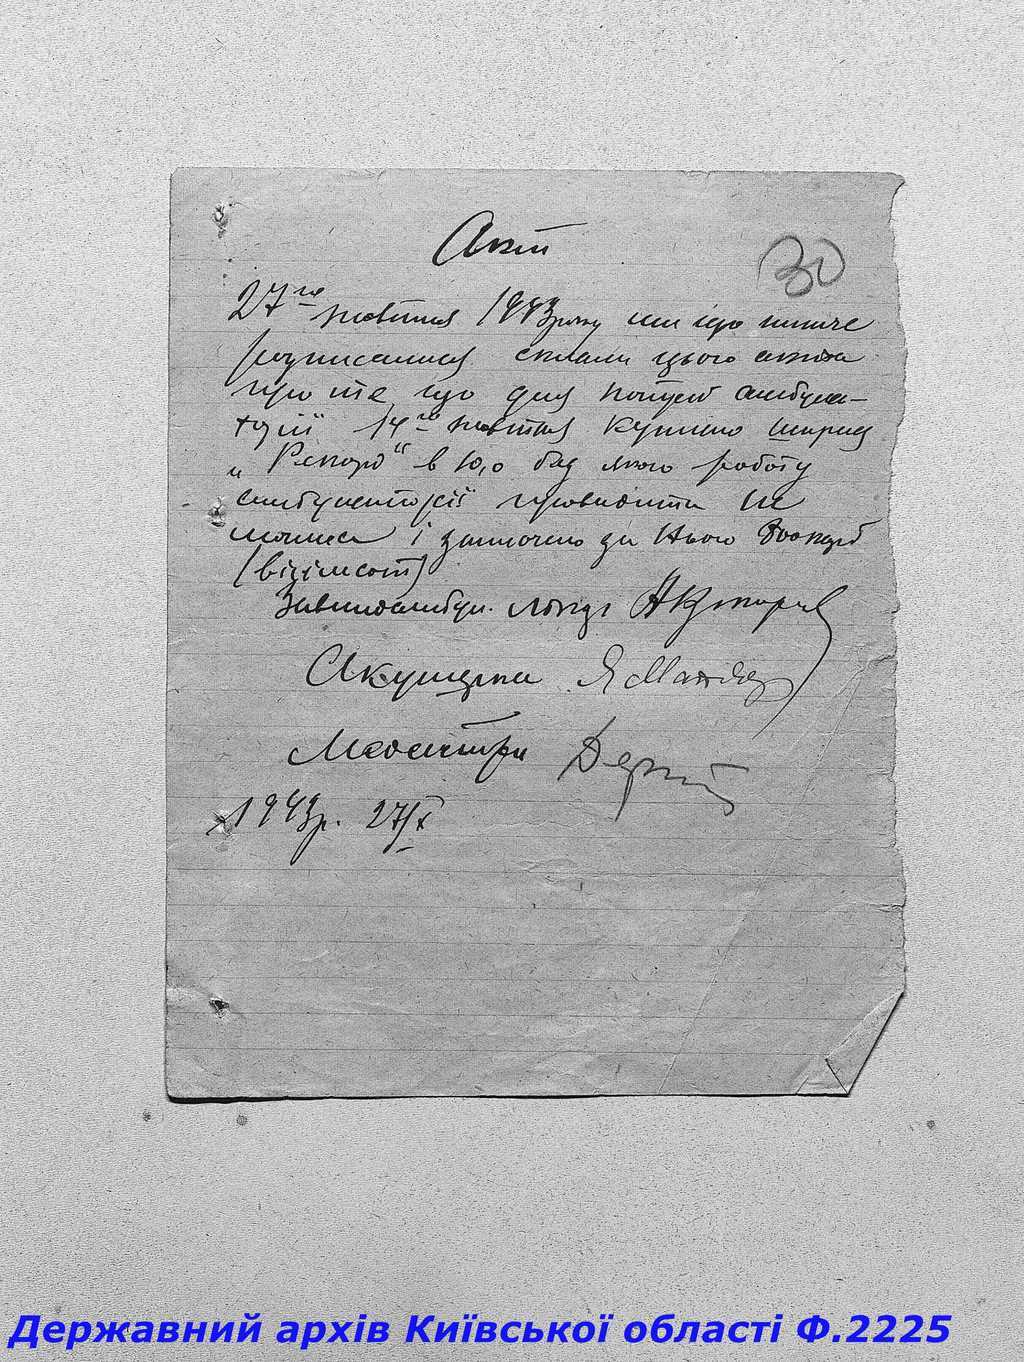 Акт
30
27го жовтня 1943 року ми що нижче
підписалися склали цього акта
про те що для потреб амбула-
торії 14го жовтня куплено шприц
„Рекорд“ в 10,0 без якого роботу
амбулаторії проводити не
можна і заплачено за нього 800 карб
(вісімсот)
Завамбул. лікар
Акушерка
Медсестра
1943р. 27/X
Державний архів Київської області Ф.2225